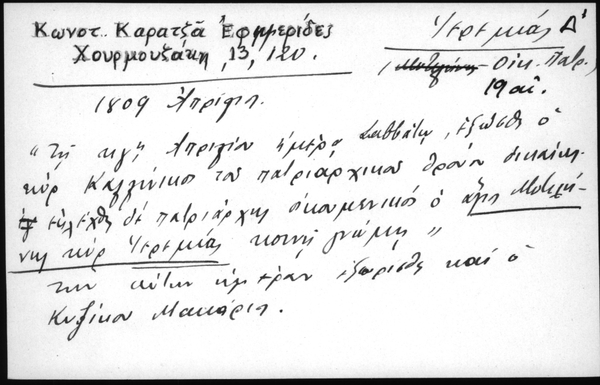 Κωνστ. Καρατζᾶ Ἐφημερίδες
Χουρμουζάκη, 13, 120.
Ἱερεμίας Δ'
(Μυτιλήνης - Οἰκ. Πατρ.)
19 αἰ.
1809 Ἀπρίλη.
"Τῇ κγῃ Ἀπριλίου ἡμέρᾳ Σαββάτῳ, ἐξώσθη ὁ
κὺρ Καλλίνικος τοῦ πατριαρχικοῦ θρόνου
ἐξελέχθη δὲ πατριάρχης οἰκουμενικὸς ὁ ἅγιος Μυτιλή-
νης κὺρ Ἱερεμίας κοινῇ γνώμῃ"
τὴν αὐτὴν ἡμέραν ἐξωρίσθη καὶ ὁ
Κυζίκου Μακάριος.